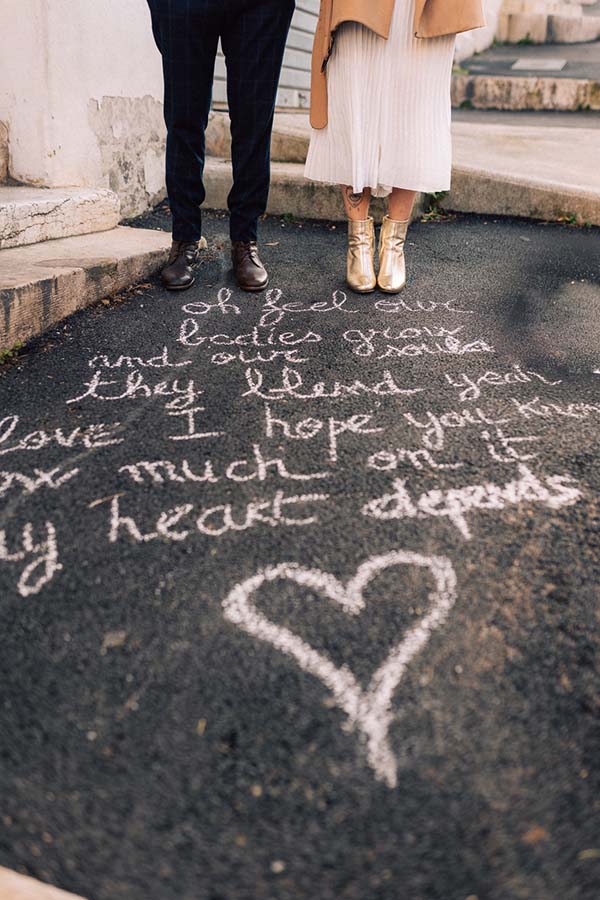 oh feel our
bodies grow
and our souls
they blend yeah
love I hope you know
how much on it
my heart depends